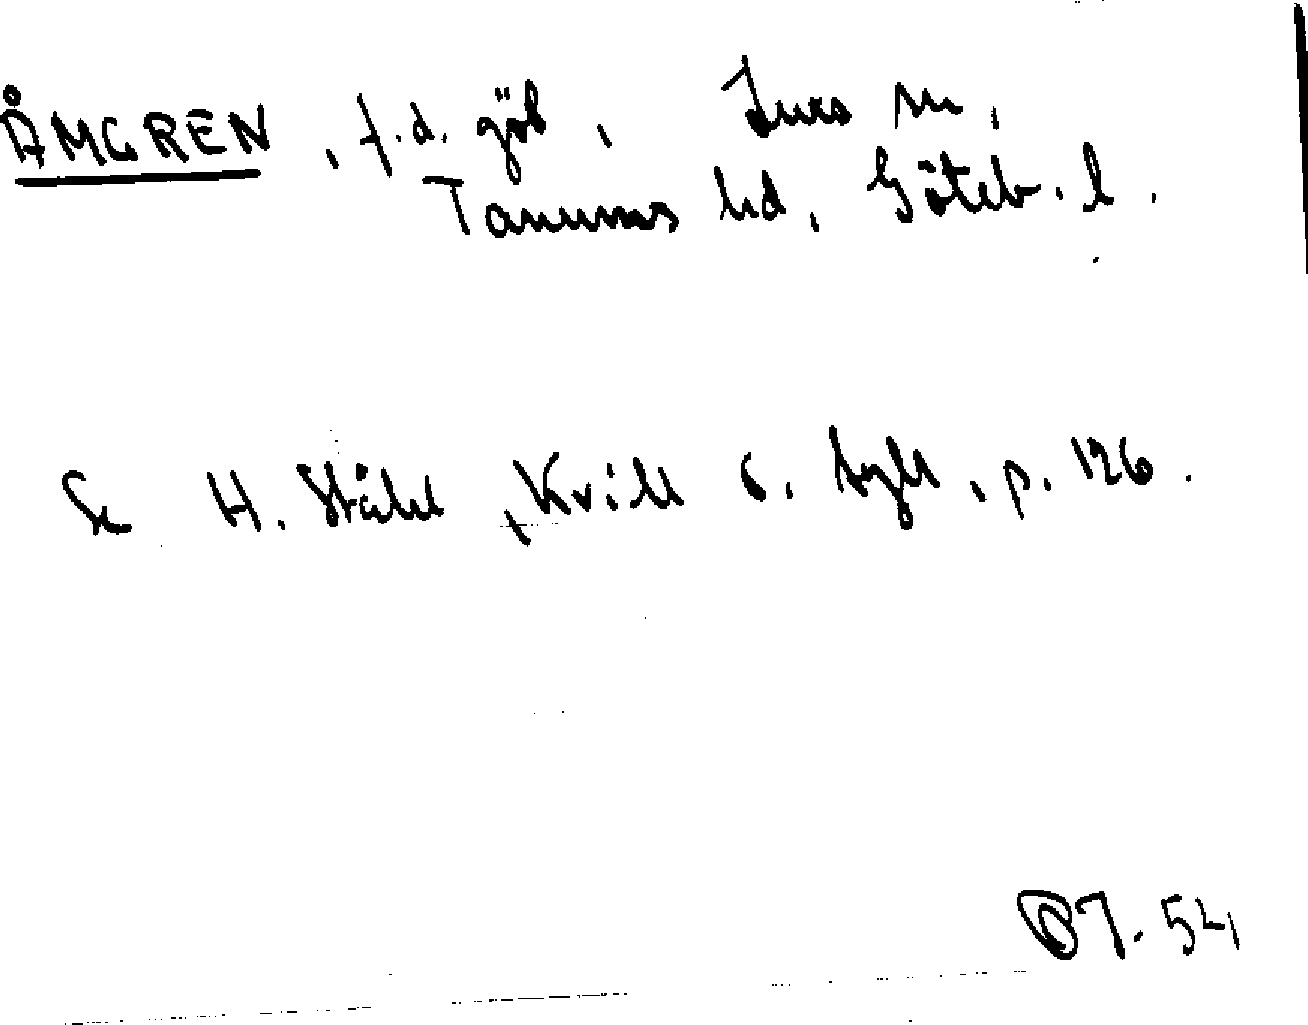 ÅMGREN, f.d. göb, Lurs sn,
Tanums hd, Göteb. l.
Se H. Ståhl, Kvill o. tegh, p. 126.
54